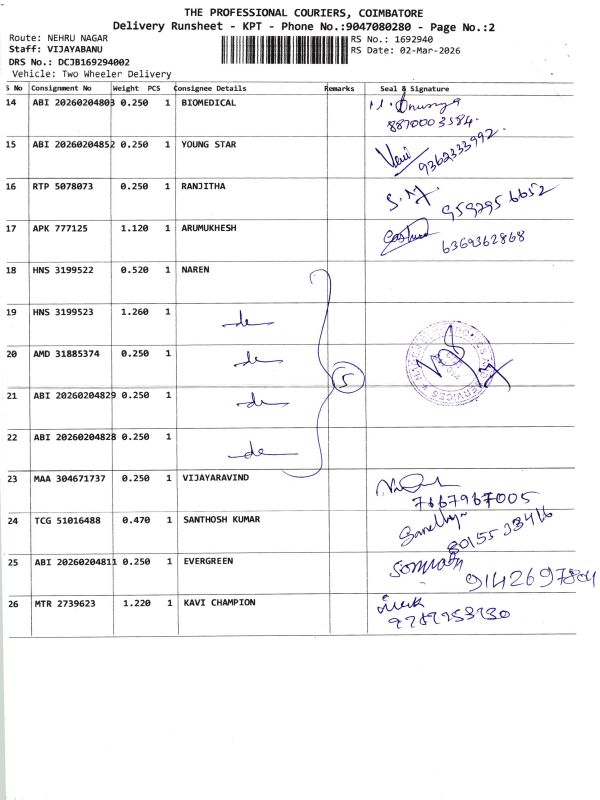 THE PROFESSIONAL COURIERS, COIMBATORE
Delivery Runsheet - KPT - Phone No.:9047080280 - Page No.:2
Route: NEHRU NAGAR
RS No.: 1692940
Staff: VIJAYABANU
RS Date: 02-Mar-2026
DRS No.: DCJB169294002
Vehicle: Two Wheeler Delivery
S No Consignment No Weight PCS Consignee Details Remarks Seal & Signature
14 ABI 20260204803 0.250 1 BIOMEDICAL
8870003584.
15 ABI 20260204852 0.250 1 YOUNG STAR
9362333992.
16 RTP 5078073 0.250 1 RANJITHA S.M.
9592956652
17 APK 777125 1.120 1 ARUMUKHESH
6369362868
18 HNS 3199522 0.520 1 NAREN
19 HNS 3199523 1.260 1 do
20 AMD 31885374 0.250 1 do
5
21 ABI 20260204829 0.250 1 do
22 ABI 20260204828 0.250 1 do
23 MAA 304671737 0.250 1 VIJAYARAVIND
7667967005
24 TCG 51016488 0.470 1 SANTHOSH KUMAR
8015533416
25 ABI 20260204811 0.250 1 EVERGREEN
9142697804
26 MTR 2739623 1.220 1 KAVI CHAMPION
9787953930